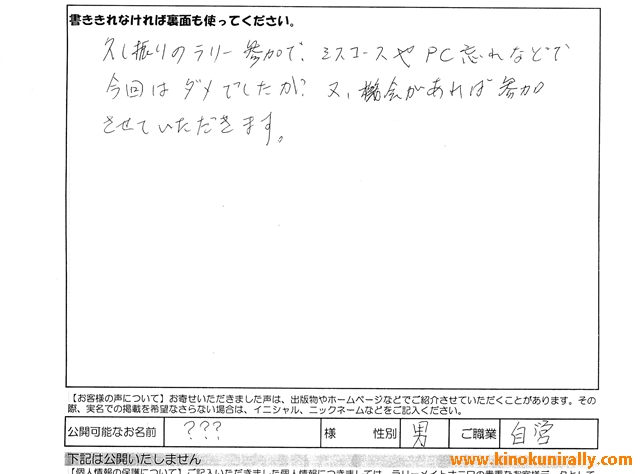 書ききれなければ裏面も使ってください。
久し振りのラリー参加で、ミスコースやPC忘れなどで
今回はダメでしたが? 又、機会があれば参加
させていただきます。
【お客様の声について】お寄せいただきました声は、出版物やホームページなどでご紹介させていただくことがあります。その
際、実名での掲載を希望なさらない場合は、イニシャル、ニックネームなどをご記入ください。
公開可能なお名前 ??? 様 性別 男 ご職業 自営
下記は公開いたしません
www.kinokunirally.com